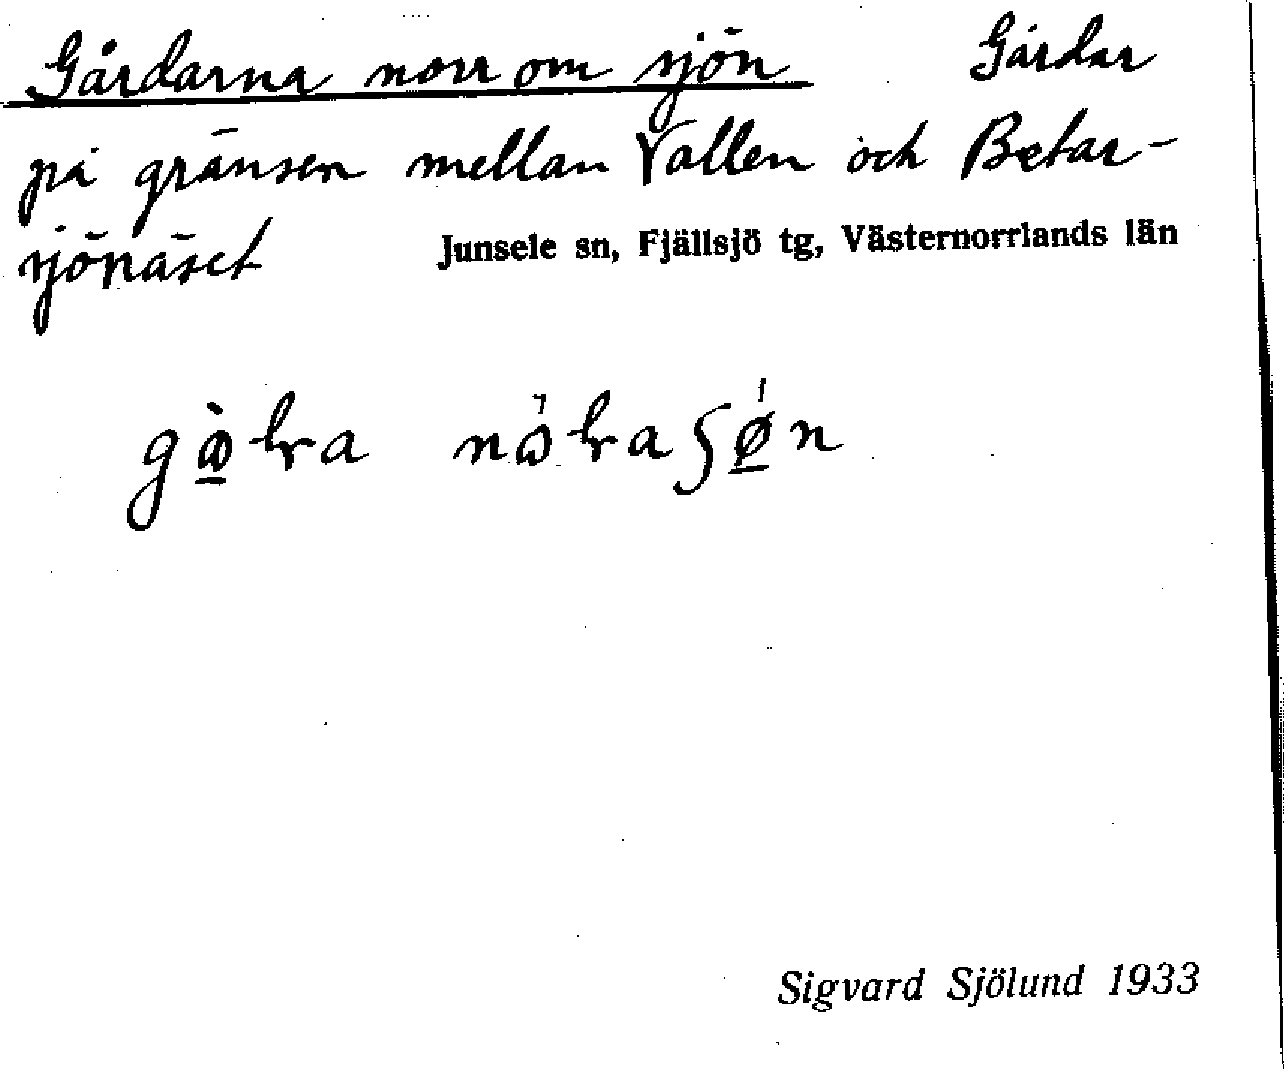 Gårdarna norr om sjön Gårdar
på gränsen mellan Vallen och Betar-
sjönäset Junsele sn, Fjällsjö tg, Västernorrlands län
Sigvard Sjölund 1933